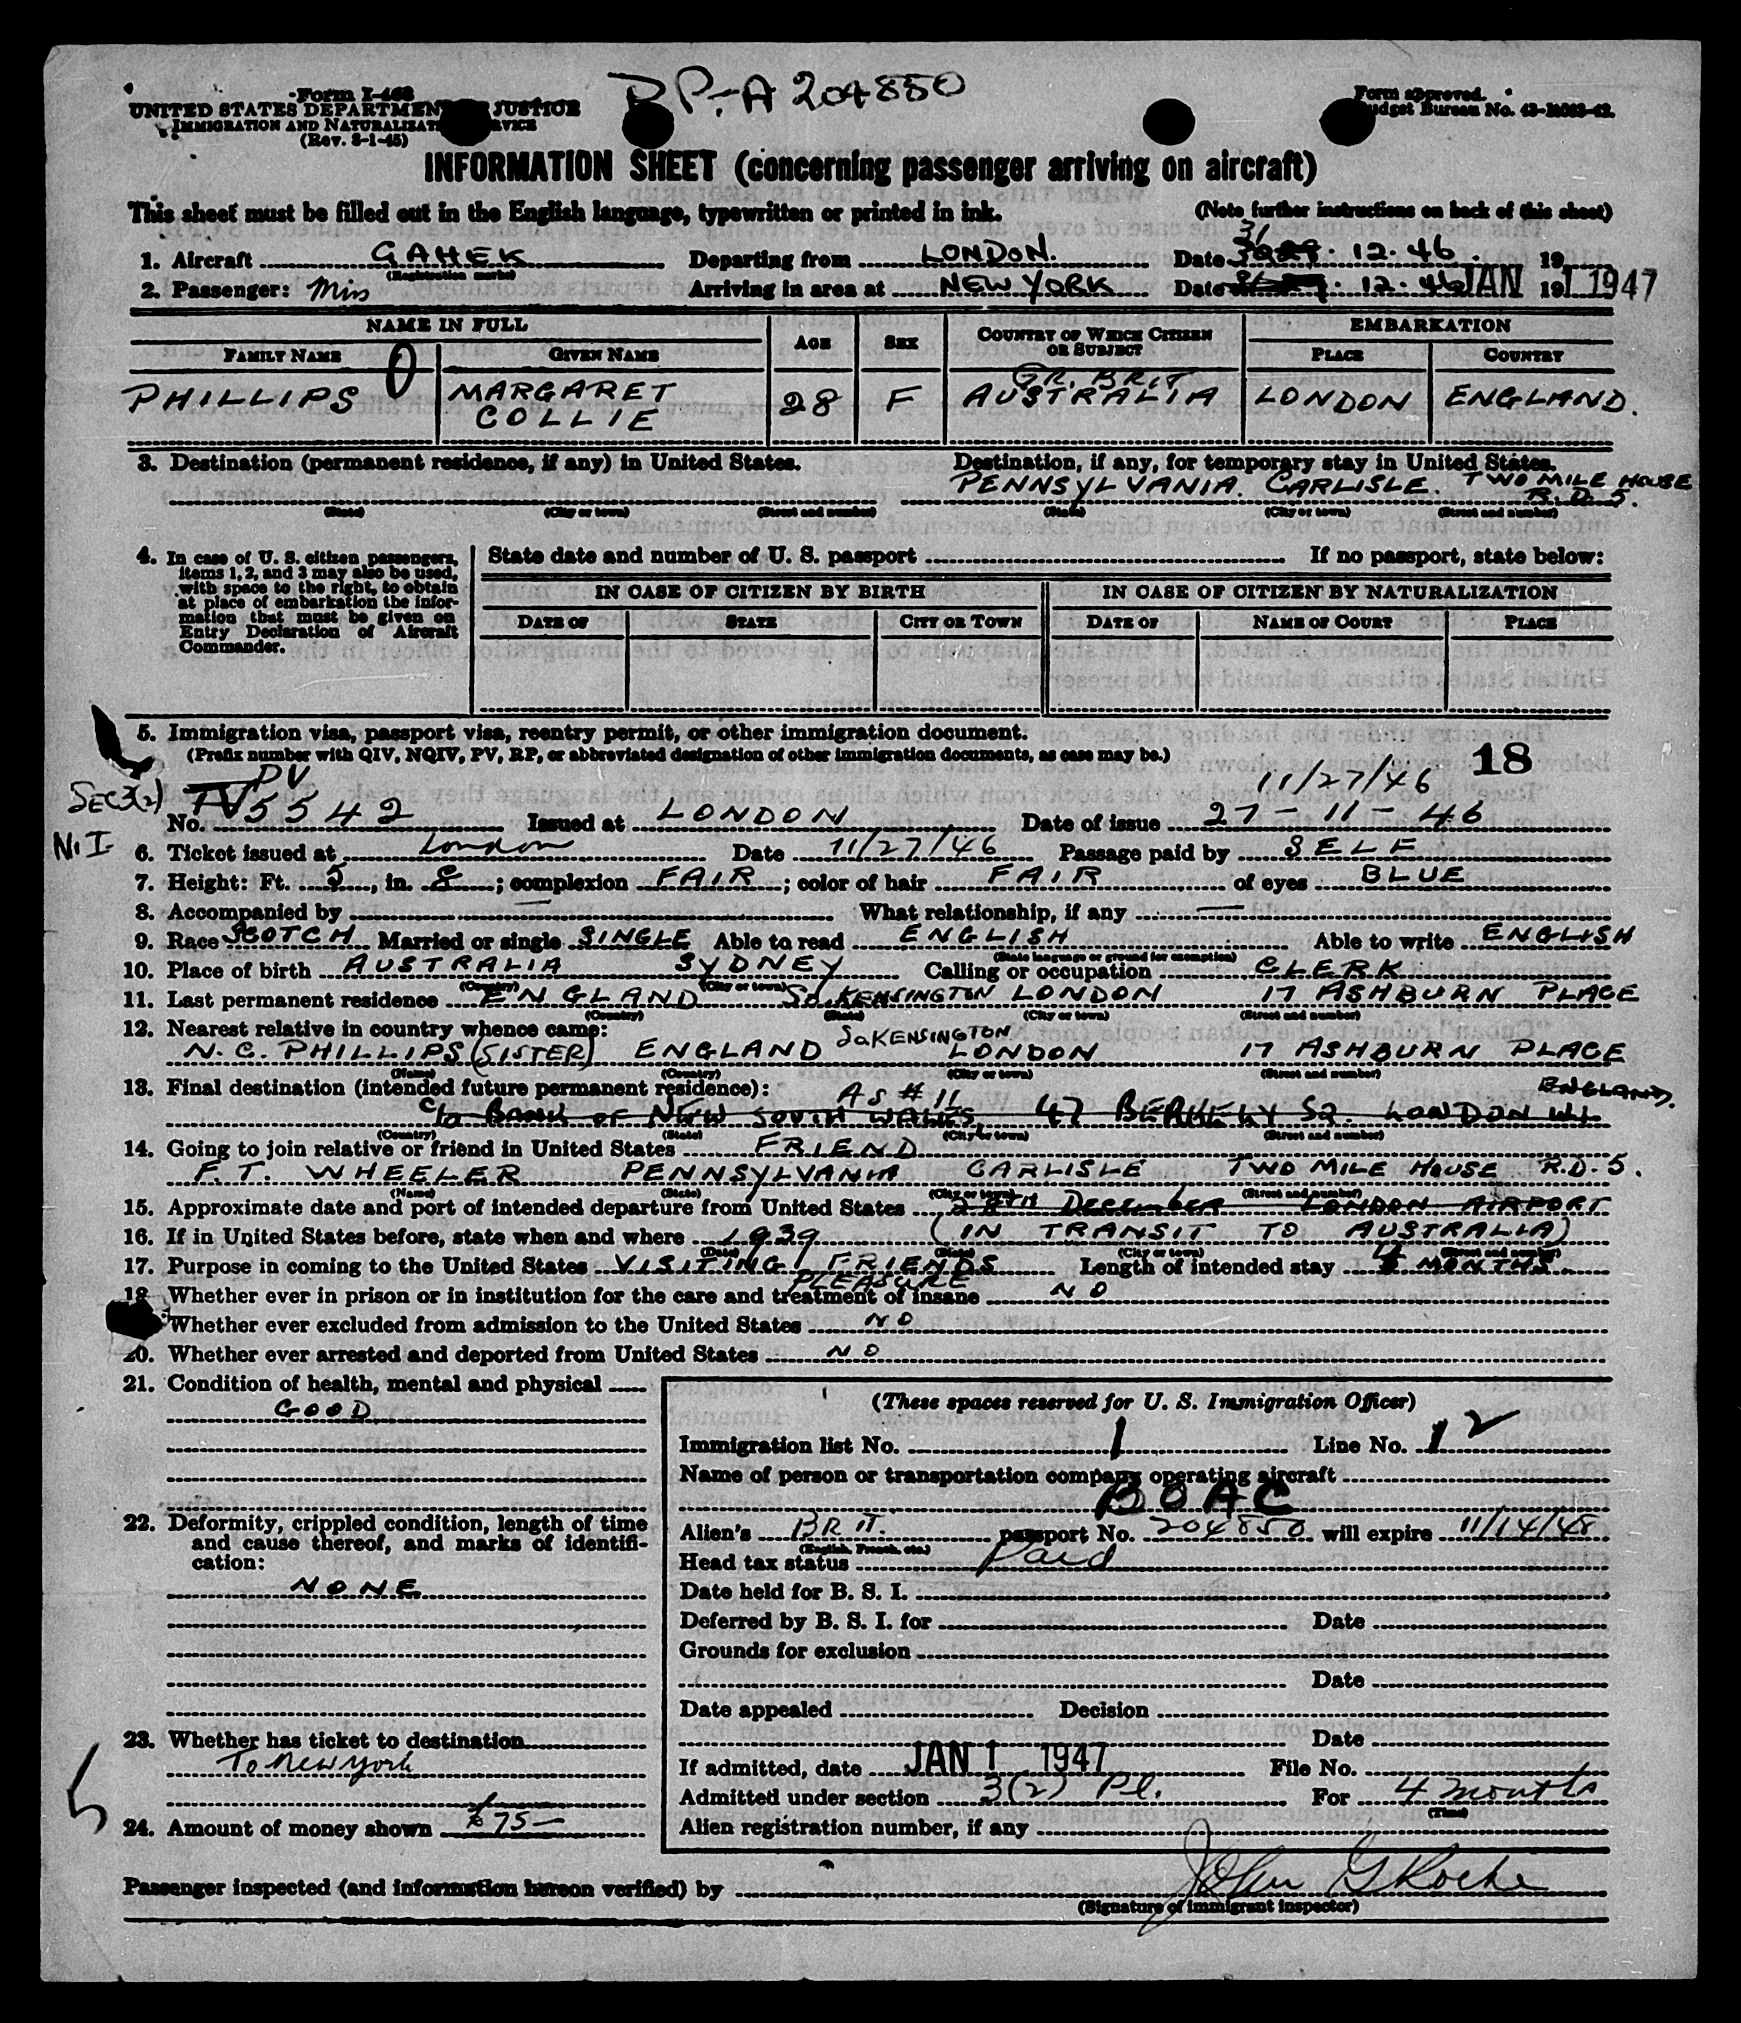 BP.-A 204850
Form I-468
UNITED STATES DEPARTMENT JUSTICE
IMMIGRATION AND NATURALIZATION SERVICE
(Rev. 8-1-45)
Form approved.
Budget Bureau No.
INFORMATION SHEET (concerning passenger arriving on aircraft)
This sheet must be filled out in the English language, typewritten or printed in ink. (Note further instructions on back of this sheet)
31
1. Aircraft GAHEK Departing from LONDON. Date 12.46. 19
(Registration marks)
2. Passenger: Miss Arriving in area at NEW YORK Date 12.46 JAN 1 1947
NAME IN FULL AGE SEX COUNTRY OF WHICH CITIZEN OR SUBJECT EMBARKATION
FAMILY NAME GIVEN NAME PLACE COUNTRY
GR. BRIT
PHILLIPS MARGARET COLLIE 28 F AUSTRALIA LONDON ENGLAND.
3. Destination (permanent residence, if any) in United States. Destination, if any, for temporary stay in United States.
PENNSYLVANIA. CARLISLE. TWO MILE HOUSE R.D.5.
(State) (City or town) (Street and number) (State) (City or town) (Street and number)
4. In case of U. S. citizen passengers, items 1, 2, and 3 may also be used, with space to the right, to obtain at place of embarkation the information that must be given on Entry Declaration of Aircraft Commander.
State date and number of U. S. passport If no passport, state below:
IN CASE OF CITIZEN BY BIRTH IN CASE OF CITIZEN BY NATURALIZATION
DATE OF STATE CITY OR TOWN DATE OF NAME OF COURT PLACE
5. Immigration visa, passport visa, reentry permit, or other immigration document.
(Prefix number with QIV, NQIV, PV, RP, or abbreviated designation of other immigration documents, as case may be.) 18
SEC 3(2) PV 11/27/46
No. TV 5542 Issued at LONDON Date of issue 27-11-46
N.I.
6. Ticket issued at London Date 11/27/46 Passage paid by SELF
7. Height: Ft. 5, in. 8; complexion FAIR; color of hair FAIR of eyes BLUE
8. Accompanied by — What relationship, if any —
9. Race SCOTCH Married or single SINGLE Able to read ENGLISH Able to write ENGLISH
(State language or ground for exemption)
10. Place of birth AUSTRALIA SYDNEY Calling or occupation CLERK
(Country) (City or town)
11. Last permanent residence ENGLAND So. KENSINGTON LONDON 17 ASHBURN PLACE
(Country) (State) (City or town) (Street and number)
12. Nearest relative in country whence came:
N.C. PHILLIPS (SISTER) ENGLAND So KENSINGTON LONDON 17 ASHBURN PLACE
(Name) (Country) (City or town) (Street and number)
13. Final destination (intended future permanent residence): AS # 11 ENGLAND.
C/o BANK OF NEW SOUTH WALES, 47 BERKELEY SQ. LONDON W.1.
(Country) (State) (City or town) (Street and number)
14. Going to join relative or friend in United States FRIEND
F.T. WHEELER PENNSYLVANIA CARLISLE TWO MILE HOUSE R.D.5.
(Name) (State) (City or town) (Street and number)
15. Approximate date and port of intended departure from United States 28TH DECEMBER LONDON AIRPORT
16. If in United States before, state when and where 1939 (IN TRANSIT TO AUSTRALIA)
(Date) (State) (City or town) (Street and number)
17. Purpose in coming to the United States VISITING FRIENDS Length of intended stay 4 MONTHS.
PLEASURE
18. Whether ever in prison or in institution for the care and treatment of insane NO
Whether ever excluded from admission to the United States NO
20. Whether ever arrested and deported from United States NO
21. Condition of health, mental and physical
GOOD
22. Deformity, crippled condition, length of time and cause thereof, and marks of identification:
NONE
23. Whether has ticket to destination
To New York
24. Amount of money shown $75—
(These spaces reserved for U. S. Immigration Officer)
Immigration list No. 1 Line No. 12
Name of person or transportation company operating aircraft
BOAC
Alien's BRIT. passport No. 204850 will expire 11/14/48
(English, French, etc.)
Head tax status Paid
Date held for B. S. I.
Deferred by B. S. I. for Date
Grounds for exclusion
Date
Date appealed Decision
Date
If admitted, date JAN 1 1947 File No.
Admitted under section 3(2) Pl. For 4 months
(Time)
Alien registration number, if any
Passenger inspected (and information hereon verified) by John G Roche
(Signature of immigrant inspector)